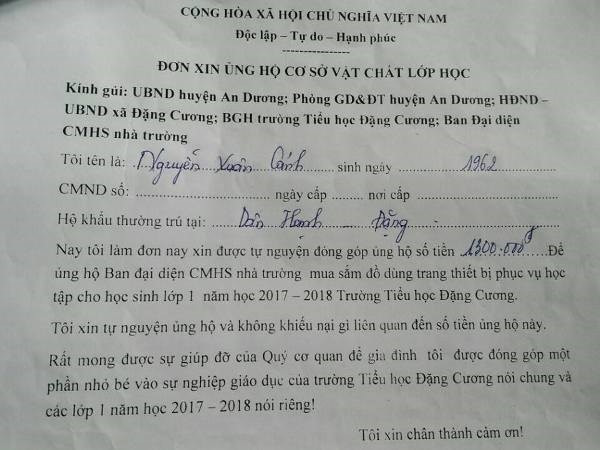 CỘNG HÒA XÃ HỘI CHỦ NGHĨA VIỆT NAM
Độc lập – Tự do – Hạnh phúc
----------------
ĐƠN XIN ỦNG HỘ CƠ SỞ VẬT CHẤT LỚP HỌC
Kính gửi: UBND huyện An Dương; Phòng GD&ĐT huyện An Dương; HĐND –
UBND xã Đặng Cương; BGH trường Tiểu học Đặng Cương; Ban Đại diện
CMHS nhà trường
Tôi tên là: Nguyễn Xuân Cảnh sinh ngày 1962
CMND số: ........................ ngày cấp .......... nơi cấp ....................
Hộ khẩu thường trú tại: Dân Hạnh – Đặng
Nay tôi làm đơn nay xin được tự nguyện đóng góp ủng hộ số tiền 1300.000đ Để
ủng hộ Ban đại diện CMHS nhà trường mua sắm đồ dùng trang thiết bị phục vụ học
tập cho học sinh lớp 1 năm học 2017 – 2018 Trường Tiểu học Đặng Cương.
Tôi xin tự nguyện ủng hộ và không khiếu nại gì liên quan đến số tiền ủng hộ này.
Rất mong được sự giúp đỡ của Quý cơ quan để gia đình tôi được đóng góp một
phần nhỏ bé vào sự nghiệp giáo dục của trường Tiểu học Đặng Cương nói chung và
các lớp 1 năm học 2017 – 2018 nói riêng!
Tôi xin chân thành cảm ơn!